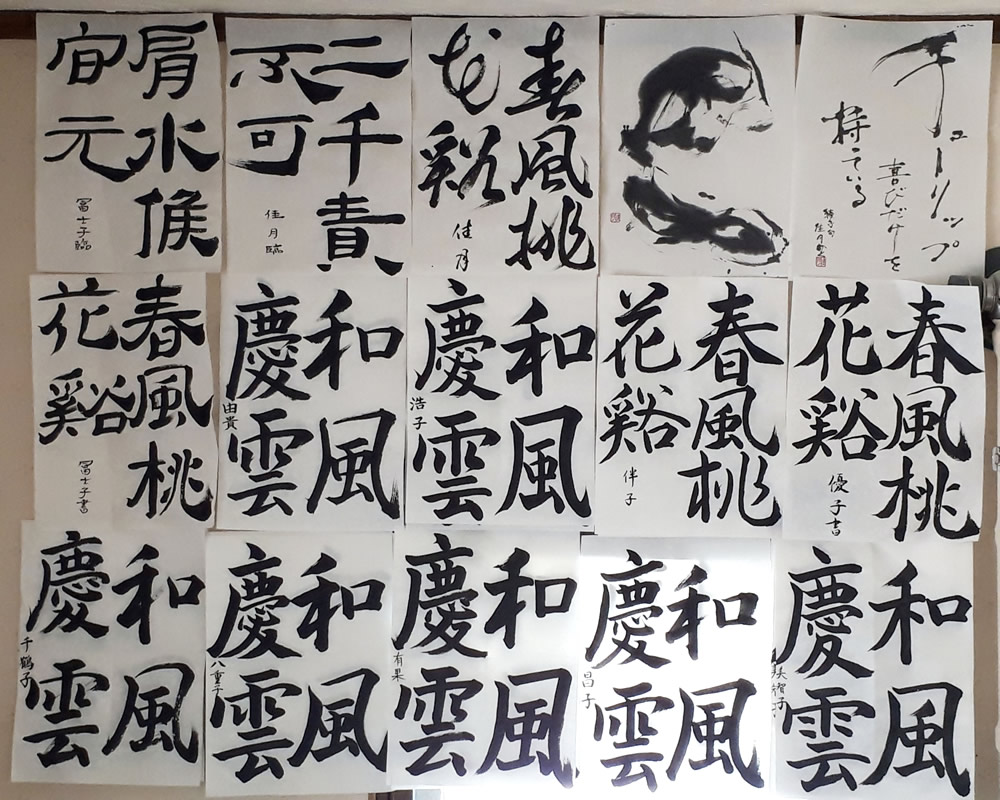 肩水候
官元
冨士子臨
二千責
不可
佳月臨
春風桃
花谿
佳月
チューリップ
喜びだけを
持っている
春風桃
花谿
冨士子書
和風
慶雲
由貴
和風
慶雲
浩子
春風桃
花谿
伴子
春風桃
花谿
優子書
和風
慶雲
千鶴子
和風
慶雲
八重子
和風
慶雲
有果
和風
慶雲
昌子
和風
慶雲